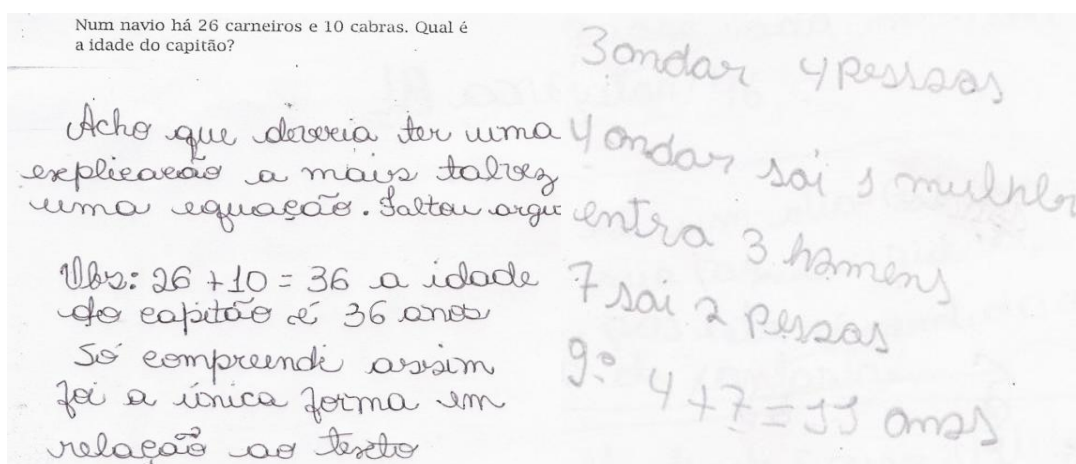 Num navio há 26 carneiros e 10 cabras. Qual é
a idade do capitão?
Acho que deveria ter uma
explicacão a mais talvez
uma equação. Faltou argu
Obs: 26 + 10 = 36 a idade
do capitão é 36 anos
Só compreendi assim
foi a única forma em
relação ao texto
3 andar 4 pessoas
4 andar sai 1 mulhler
entra 3 homens
7 sai 2 pessoas
9º 4 + 7 = 11 anos